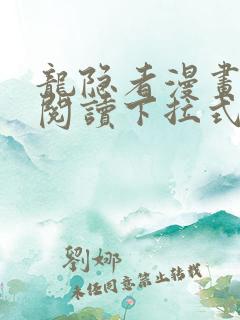 龍隐者漫畫
閱讀下拉式
劉娜
未任同意禁止转载